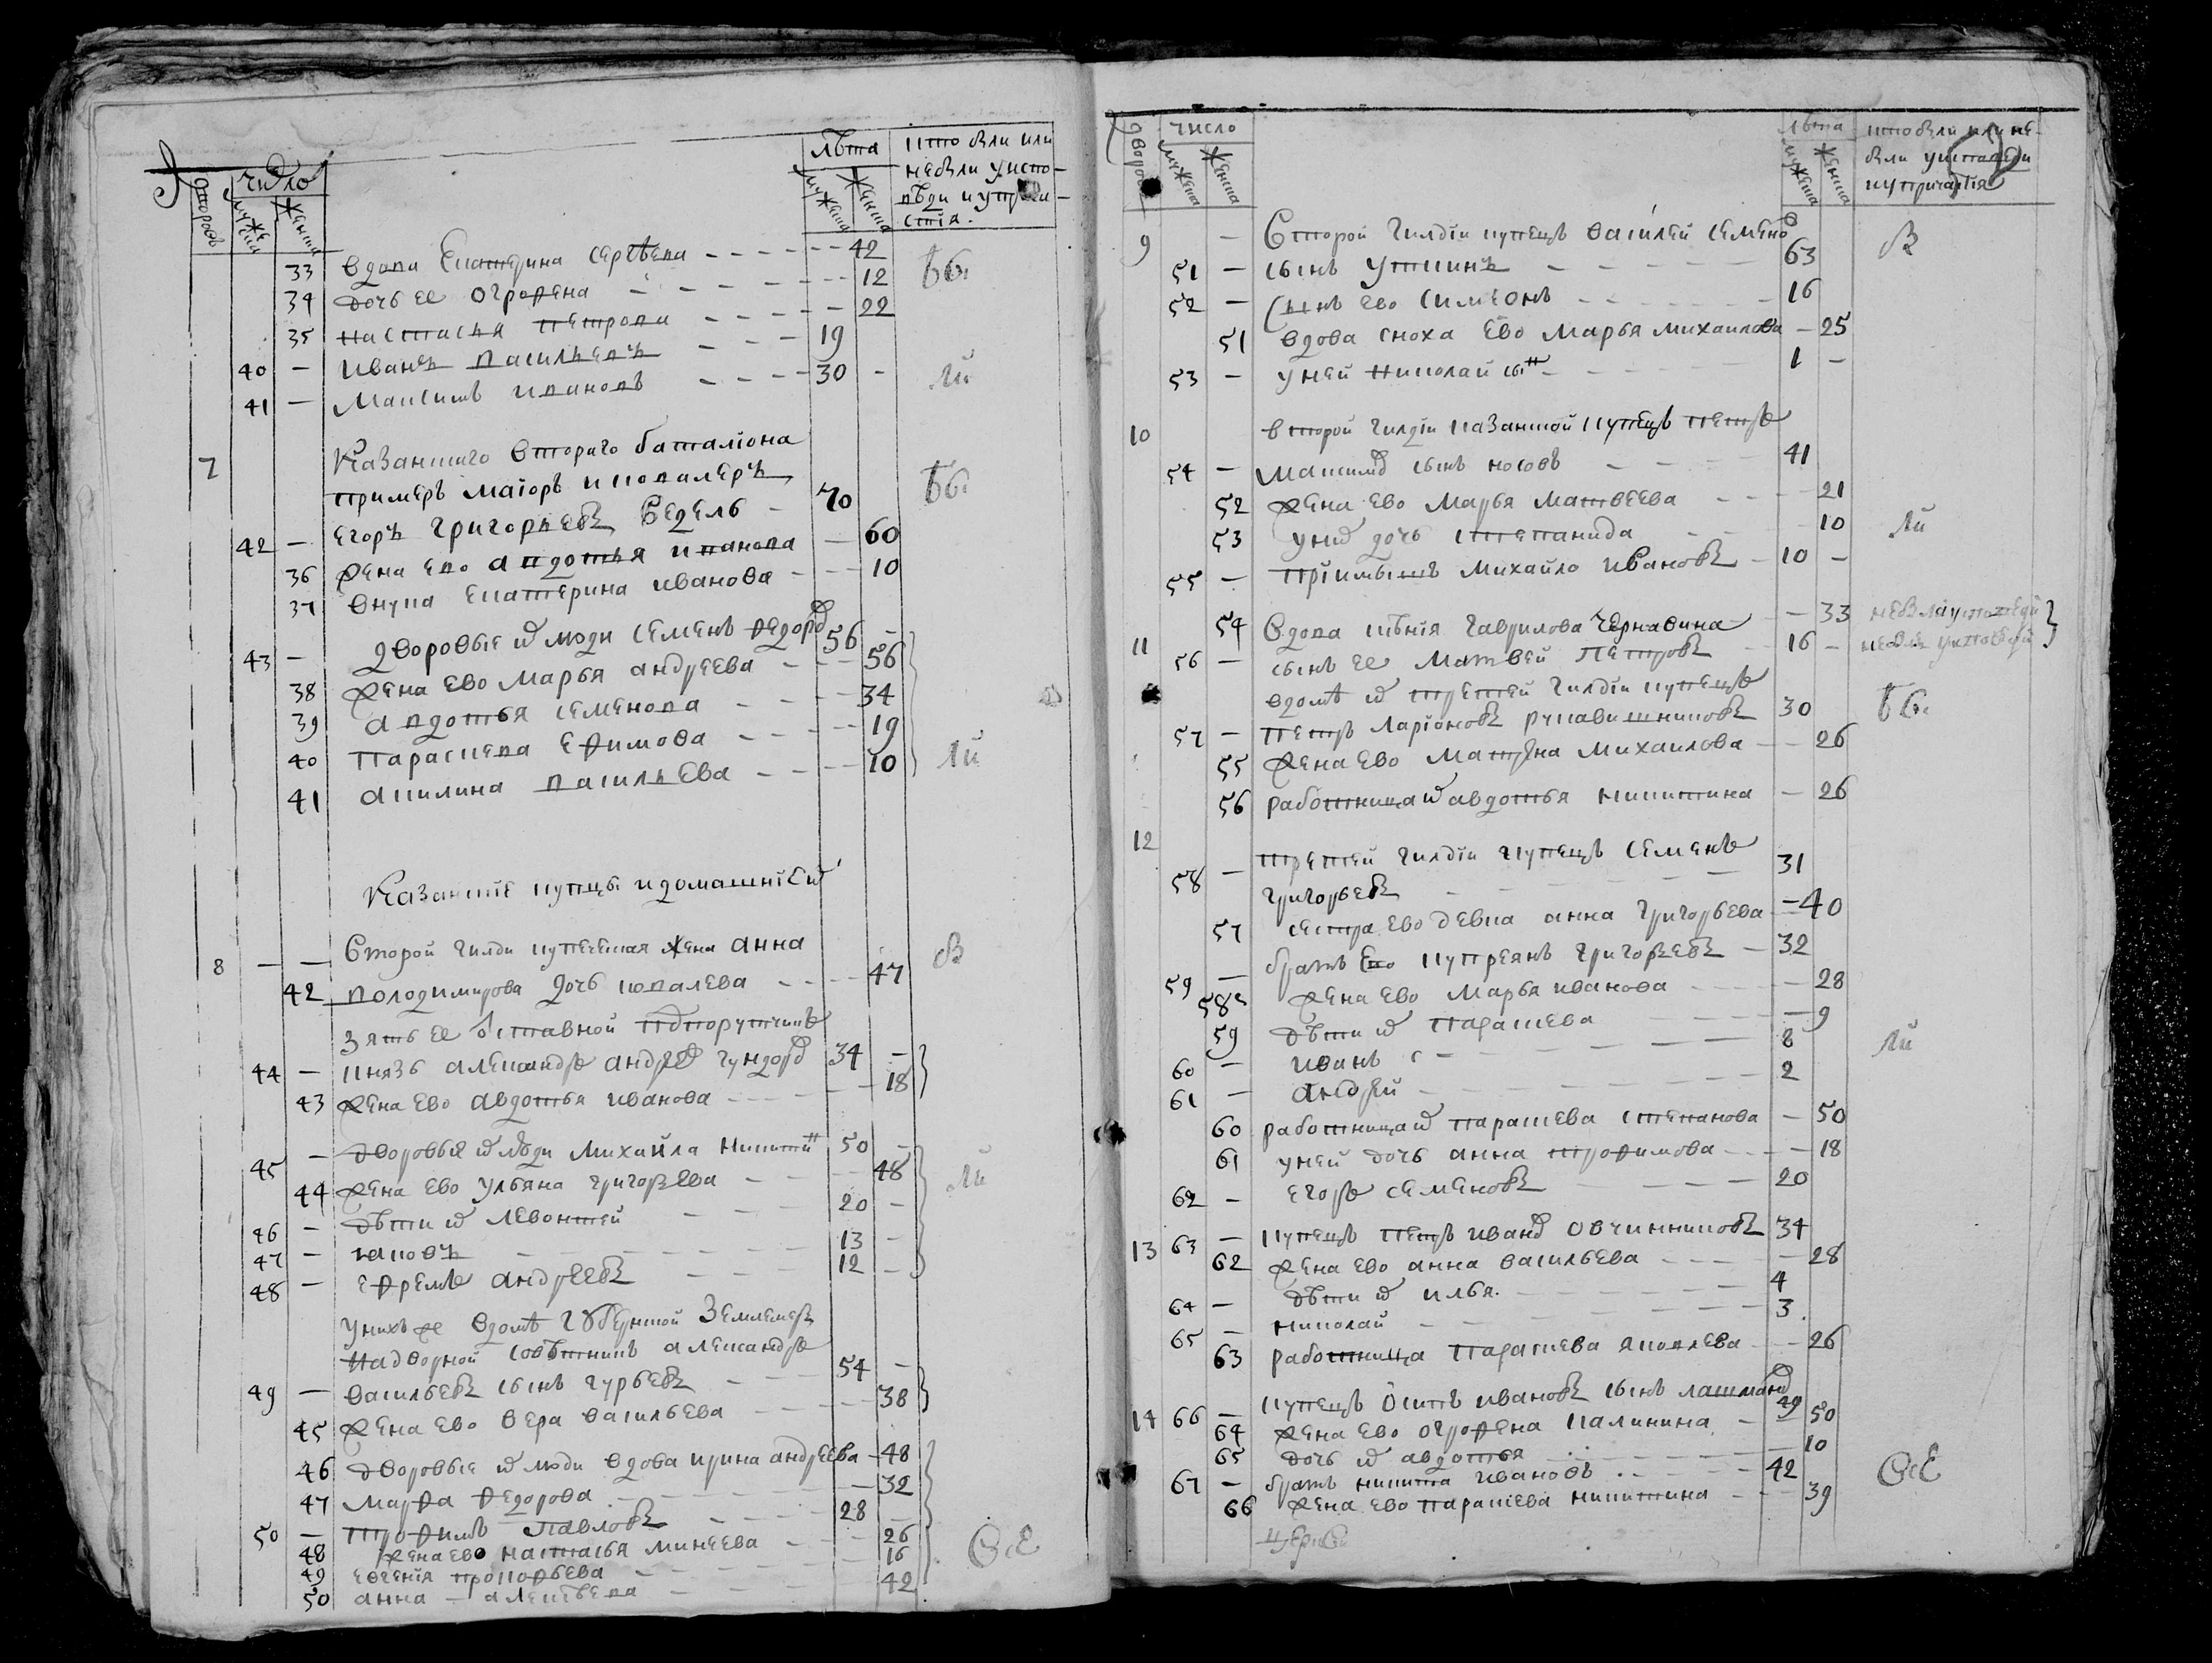 дворовъ число мужеска женска лѣта мужеска женска кто были или
небыли у испо-
вѣди и у прича-
стія.
33 вдова Екатерина Сергѣева 42
34 дочь ее Огрофена 12
35 Настасья Петрова 22
40 — Иванъ Васильевъ 19
41 — Максимъ Ивановъ 30 -
7 Казанского второго баталіона
примеръ маіоръ и ковалеръ
42 — Егоръ Григорьевъ Ведель - 70
36 жена ево Авдотья Иванова 60
37 внука Екатерина Иванова 10
43 — дворовые их люди Семенъ Федоров 56 -
38 жена ево Марья Андреева 56
39 Авдотья Семенова 34
40 Параскева Ефимова 19
41 Акилина Васильева 10
Казанскіе купцы и домашніе их
8 — — второй гилди купеческая жена Анна
42 Володимирова дочь Ковалева 47
зять ее отставной подпорутчикъ
44 — князь Александръ Андреев Гундоров 34 -
43 жена ево Авдотья Иванова 18
45 — дворовые их люди Михайла Никитин 50 -
44 жена ево Ульяна Григорьева 48
46 — дѣти их Левонтей 20 -
47 — Яковъ 13 -
48 — Ефремъ Андреевъ 12 -
у нихъ же в домѣ губернской землемеръ
надворной совѣтникъ Александръ
49 — Васильевъ сынъ Гурьевъ 54 -
45 жена ево Вера Васильева 38
46 дворовые их люди вдова Ирина Андреева 48
47 Марфа Федорова 32
50 — Трофимъ Павловъ 28 -
48 жена ево Настасья Минеева 26
49 Евгенія Прокофьева 16
50 Анна Алексѣева 42
всѣ
дворовъ число мужеска женска лѣта мужеска женска кто были или не-
были у исповеди
и у причастія
9 — второй гилдіи купецъ Василей Семенов
51 — сынъ Уткинъ 63
52 — сынъ ево Симеонъ 16
51 вдова сноха ево Марья Михаилова 25
53 — у ней Николай сын 1 -
10 второй гилдіи казанской купецъ Петръ
54 — Максимов сынъ Носовъ 41
52 жена ево Марья Матвеева 21
53 у них дочь Степанида 10
55 — пріимышъ Михайло Ивановъ 10 -
11 54 вдова Ксѣнія Гаврилова Чернавина 33
56 — сынъ ее Матвей Петровъ 16 -
в домѣ их третей гилдіи купецъ
57 — Петръ Ларіоновъ Рукавишниковъ 30
55 жена ево Матрена Михаилова 26
56 работница их Авдотья Никитина 26
12 третей гилдіи купецъ Семенъ
58 — Григорьевъ 31
57 сестра ево девка Анна Григорьева 40
59 — братъ ево Куприянъ Григорьевъ 32
58 жена ево Марья Иванова 28
59 дѣти их Параскева 9
60 — Иванъ 8
61 — Андрей 2
60 работница их Параскева Степанова 50
61 у ней дочь Анна Трофимова 18
62 — Егоръ Семеновъ 20
13 63 — купецъ Петръ Иванов Овчинниковъ 34
62 жена ево Анна Васильева 28
64 — дѣти их Илья 4
65 — Николай 3
63 работница Параскева Яковлева 26
14 66 — купецъ Осипъ Ивановъ сынъ Лашманов 49
64 жена ево Огрофена Калинина 50
65 дочь их Авдотья 10
67 — братъ Никита Ивановъ 42
66 жена ево Параскева Никитина 39
всѣ